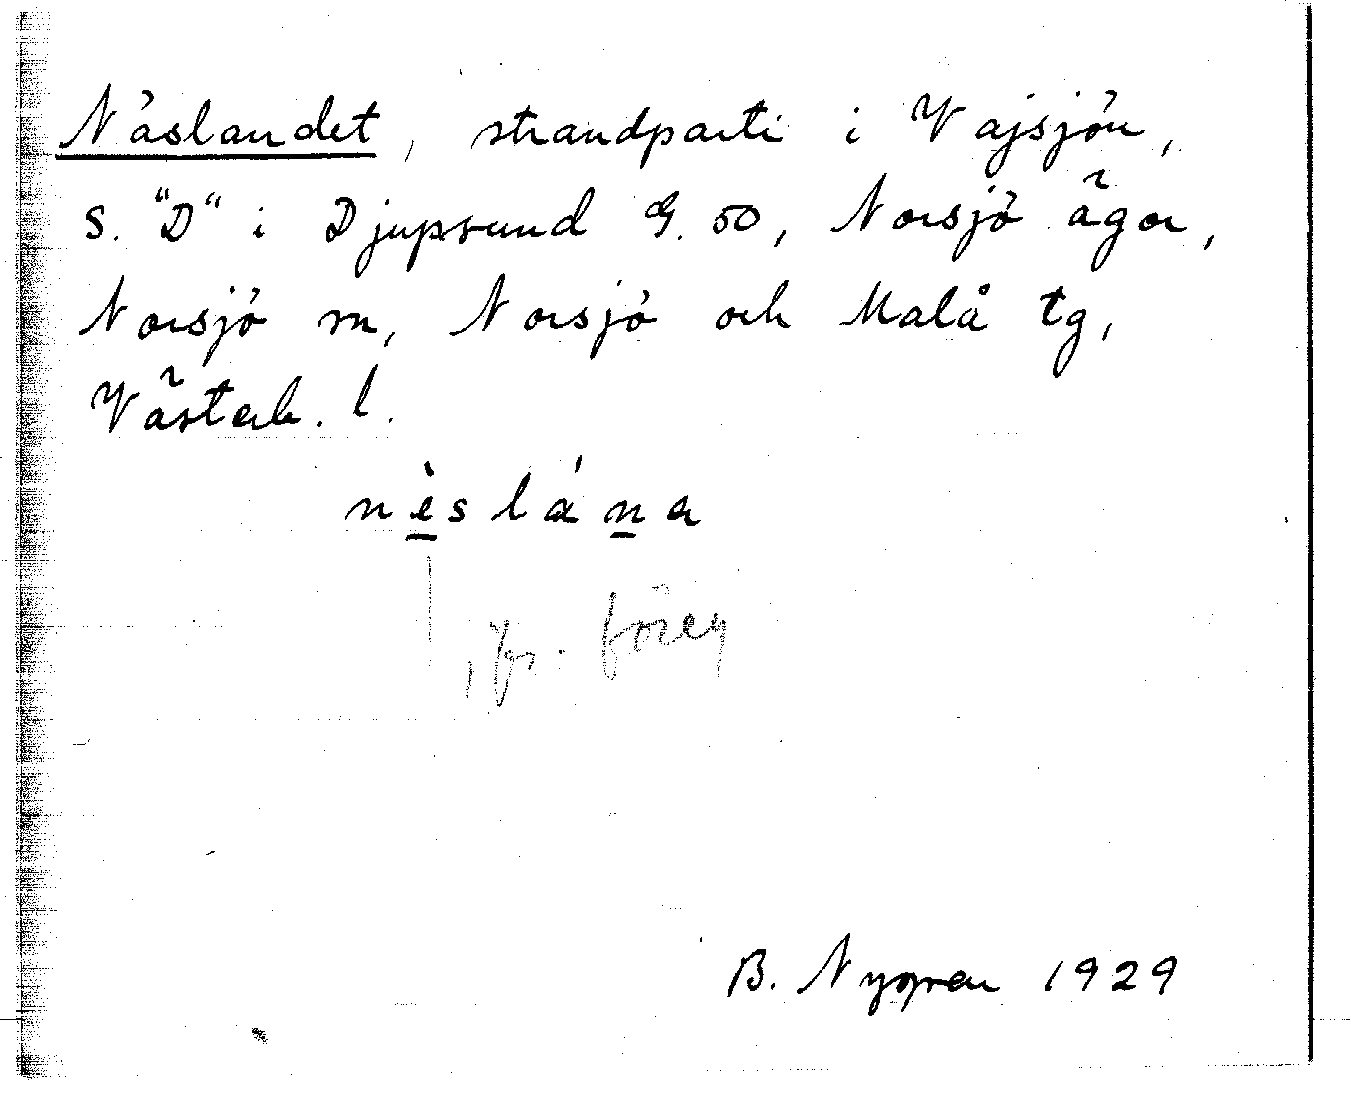 Näslandet, strandparti i Vajsjön,
S. "D" i Djupsund G. 50, Norsjö ägor,
Norsjö sn, Norsjö och Malå tg,
Västerb. l.
nèslána
, jfr. föreg
B. Nygren 1929